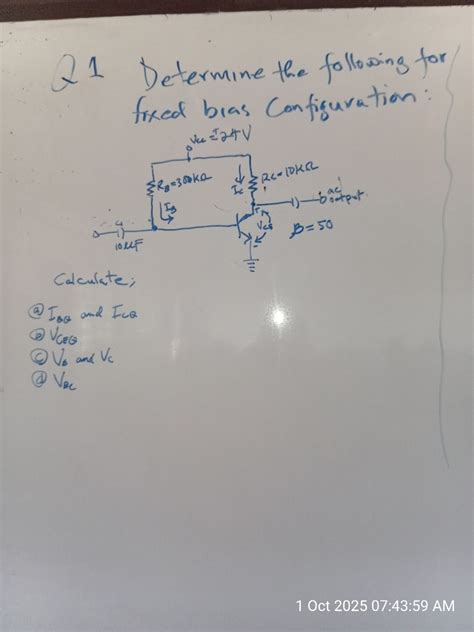 Q1 Determine the following for
fixed bias Configuration:
Vcc = +24V
RB=300KΩ
RC=10KΩ
IC
IB
ac
output
VCE
β=50
10µF
Calculate;
ⓐ IBQ and ICQ
ⓑ VCEQ
ⓒ VB and VC
ⓓ VBC
1 Oct 2025 07:43:59 AM